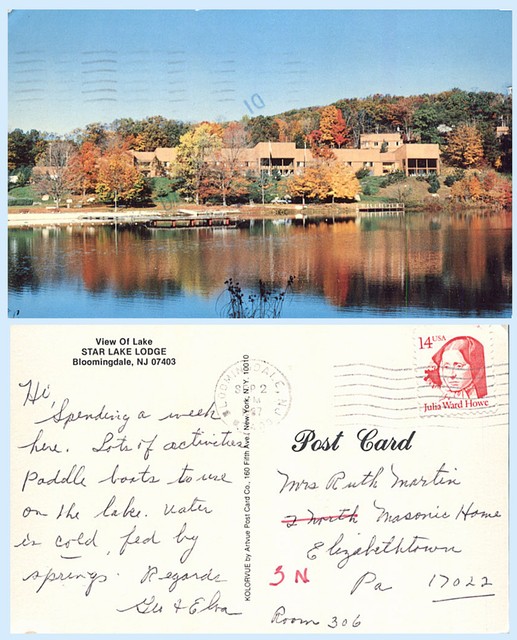 10
View Of Lake
STAR LAKE LODGE
Bloomingdale, NJ 07403
Hi,
Spending a week
here. Lots of activities
Paddle boats to use
on the lake. Water
is cold, fed by
springs. Regards
Geo & Elva
KOLORVUE by Artvue Post Card Co., 160 Fifth Ave., New York, N.Y. 10010
BLOOMINGDALE, NJ
14 USA
Julia Ward Howe
Post Card
Mrs Ruth Martin
2 North Masonic Home
Elizabethtown
3 N
Pa 17022
Room 306